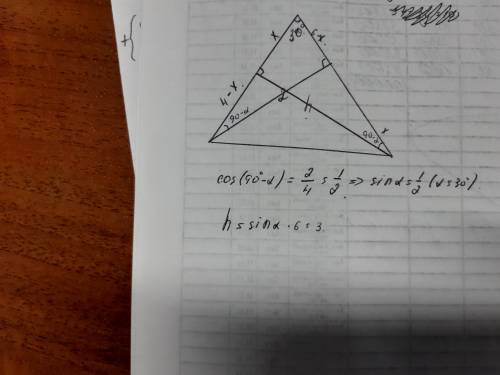 x
30°
6-x.
4-x.
2
h
90-α
90-α
x
cos(90°-α) = 2/4 = 1/2 => sinα = 1/2 (α=30°)
h = sinα · 6 = 3.